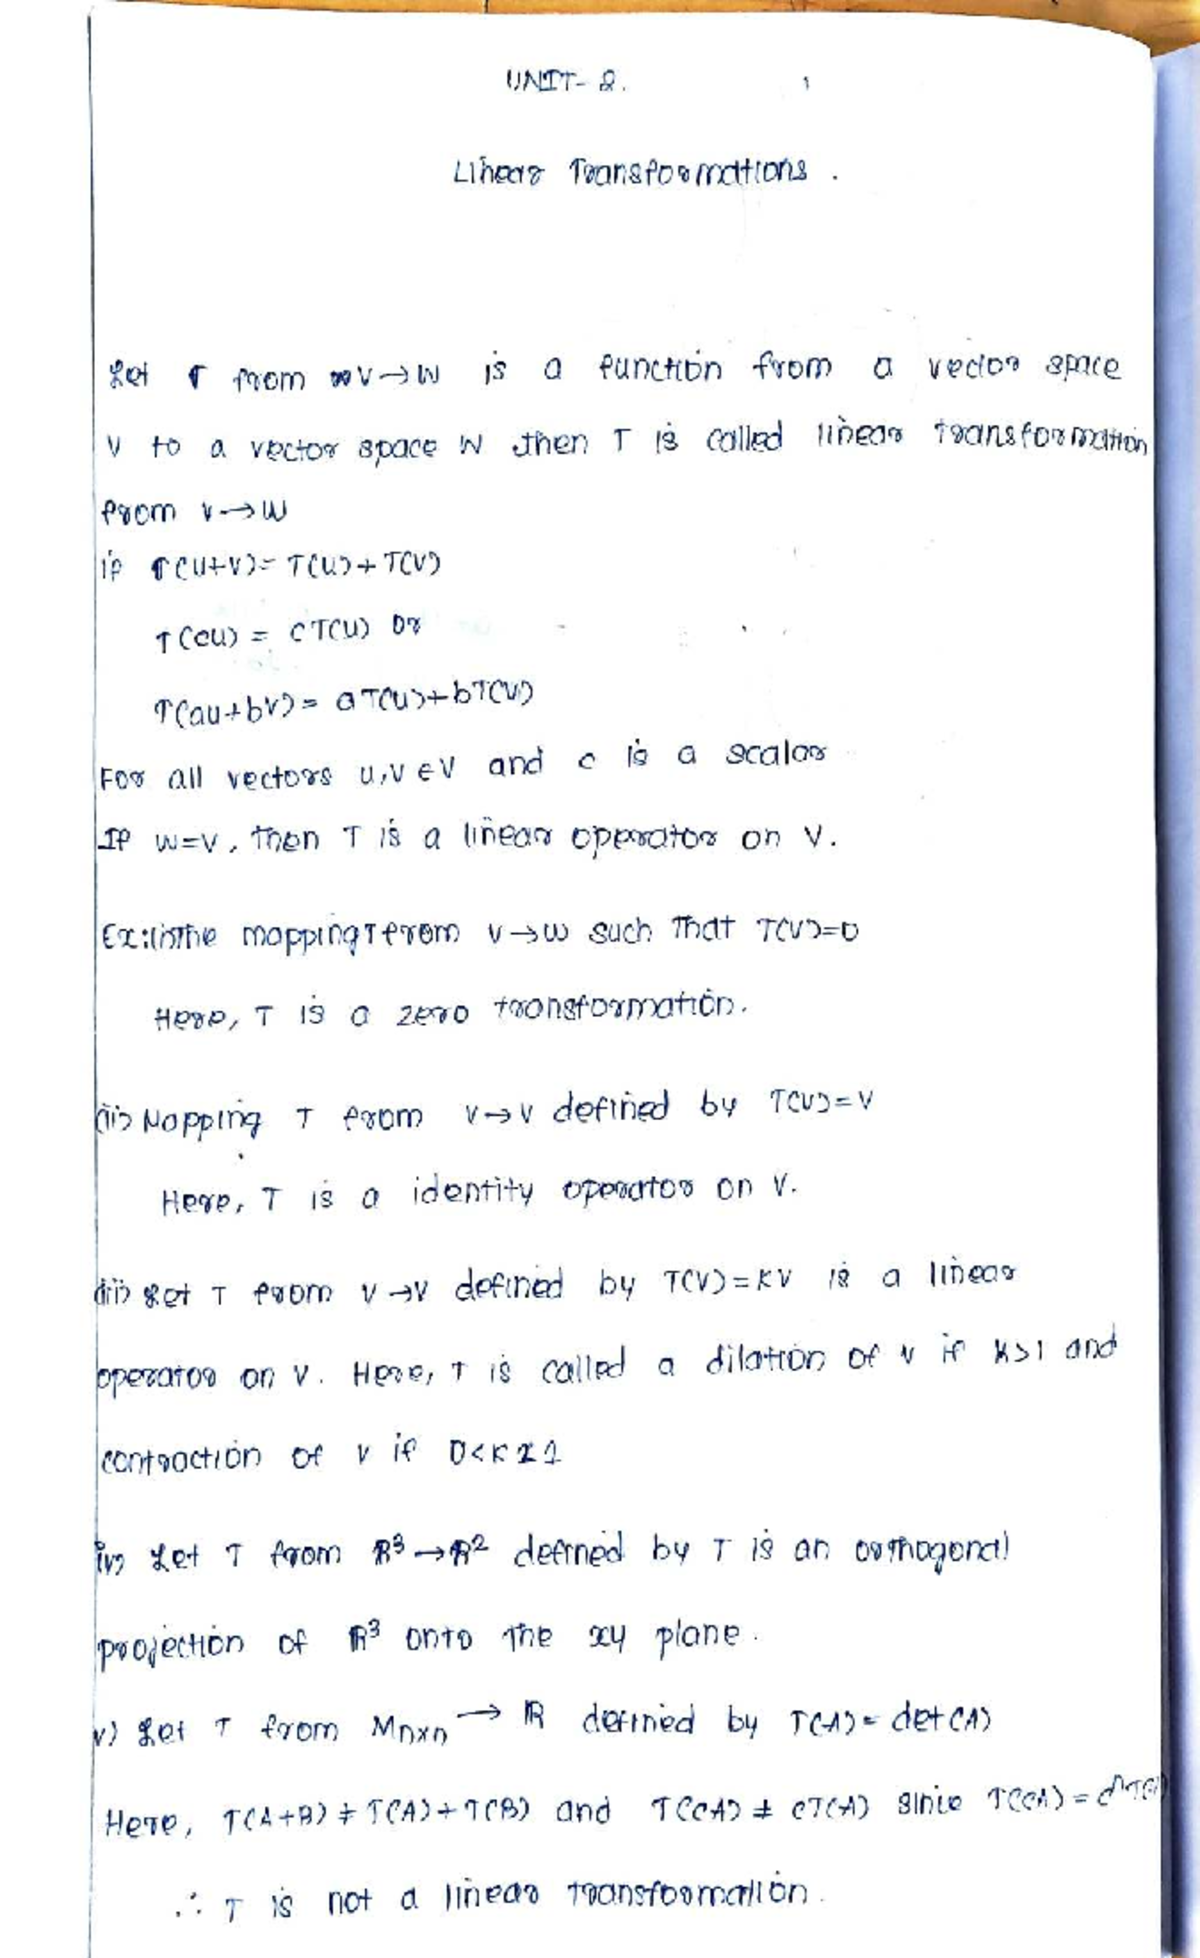 UNIT-2. 1
Linear Transformations.
Let T from V→W is a function from a vector space
V to a vector space W then T is called linear transformation
from V→W
if T(u+v)= T(u)+T(v)
T(cu) = cT(u) or
T(au+bv)= aT(u)+bT(v)
For all vectors u,v∈V and c is a scalar
If W=V, then T is a linear operator on V.
Ex:(i)The mapping T from V→W such that T(V)=0
Here, T is a zero transformation.
(ii) Mapping T from V→V defined by T(V)=V
Here, T is a identity operator on V.
(iii) Let T from V→V defined by T(V)=KV is a linear
operator on V. Here, T is called a dilation of V if K>1 and
contraction of V if 0<K<1
iv) Let T from R³→R² defined by T is an orthogonal
projection of R³ onto the xy plane.
v) Let T from Mnxn → R defined by T(A)= det(A)
Here, T(A+B) ≠ T(A)+T(B) and T(CA) ≠ CT(A) since T(CA) = cⁿT(A)
∴ T is not a linear transformation.